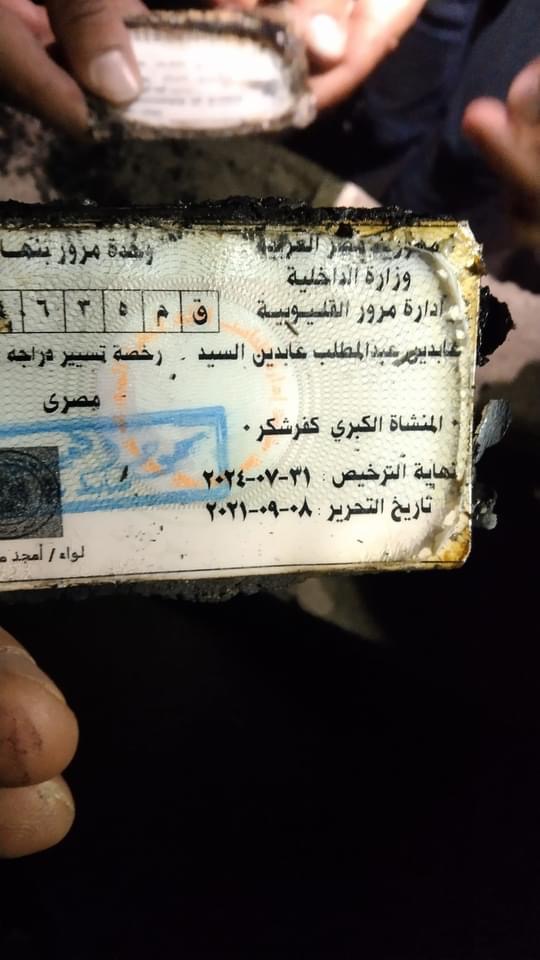 جمهورية مصر العربية وحدة مرور بنها
وزارة الداخلية
أدارة مرور القليوبية ق م ٥ ٣ ٦
عابدين عبدالمطلب عابدين السيد رخصة تسيير دراجه
مصرى
المنشاة الكبري كفرشكر
نهاية الترخيص : ٣١-٠٧-٢٠٢٤
تاريخ التحرير ٠٨-٠٩-٢٠٢١
لواء / أمجد